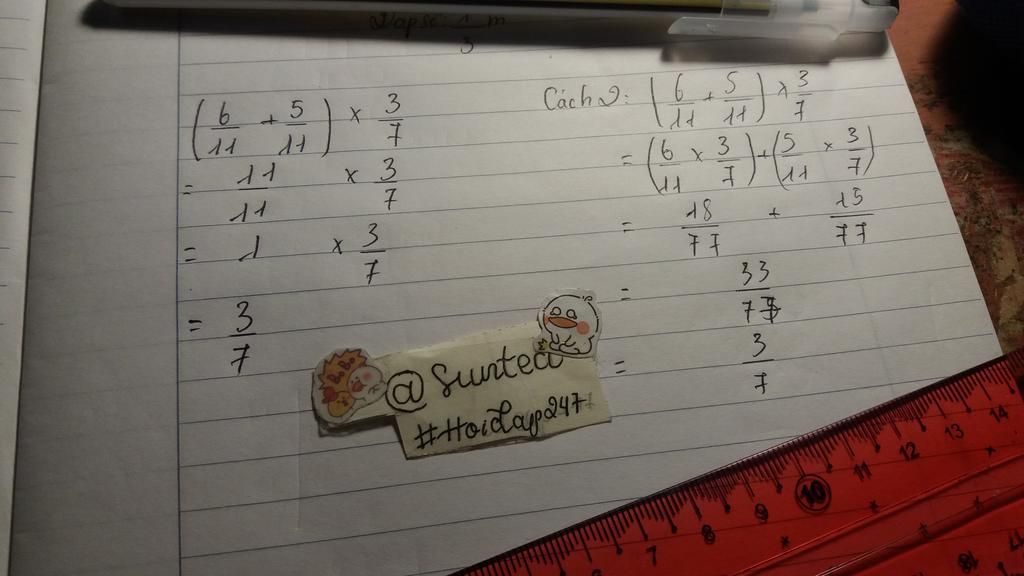 Đáp số: 1/3 m
(6/11 + 5/11) × 3/7
= 11/11 × 3/7
= 1 × 3/7
= 3/7
Cách 2: (6/11 + 5/11) × 3/7
= (6/11 × 3/7) + (5/11 × 3/7)
= 18/77 + 15/77
= 33/77
= 3/7
@Suntea
#HoiDap247
7 8 9 10 11 12 13 14